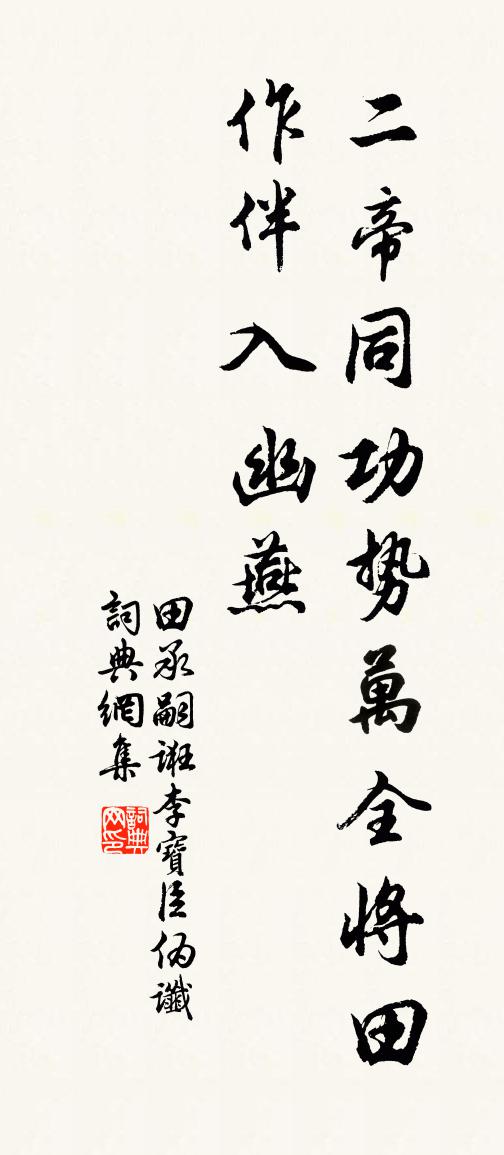 二帝同功势萬全將田
作伴入幽燕
田承嗣诳李寶臣伪讖
詞典網集
詞典网印